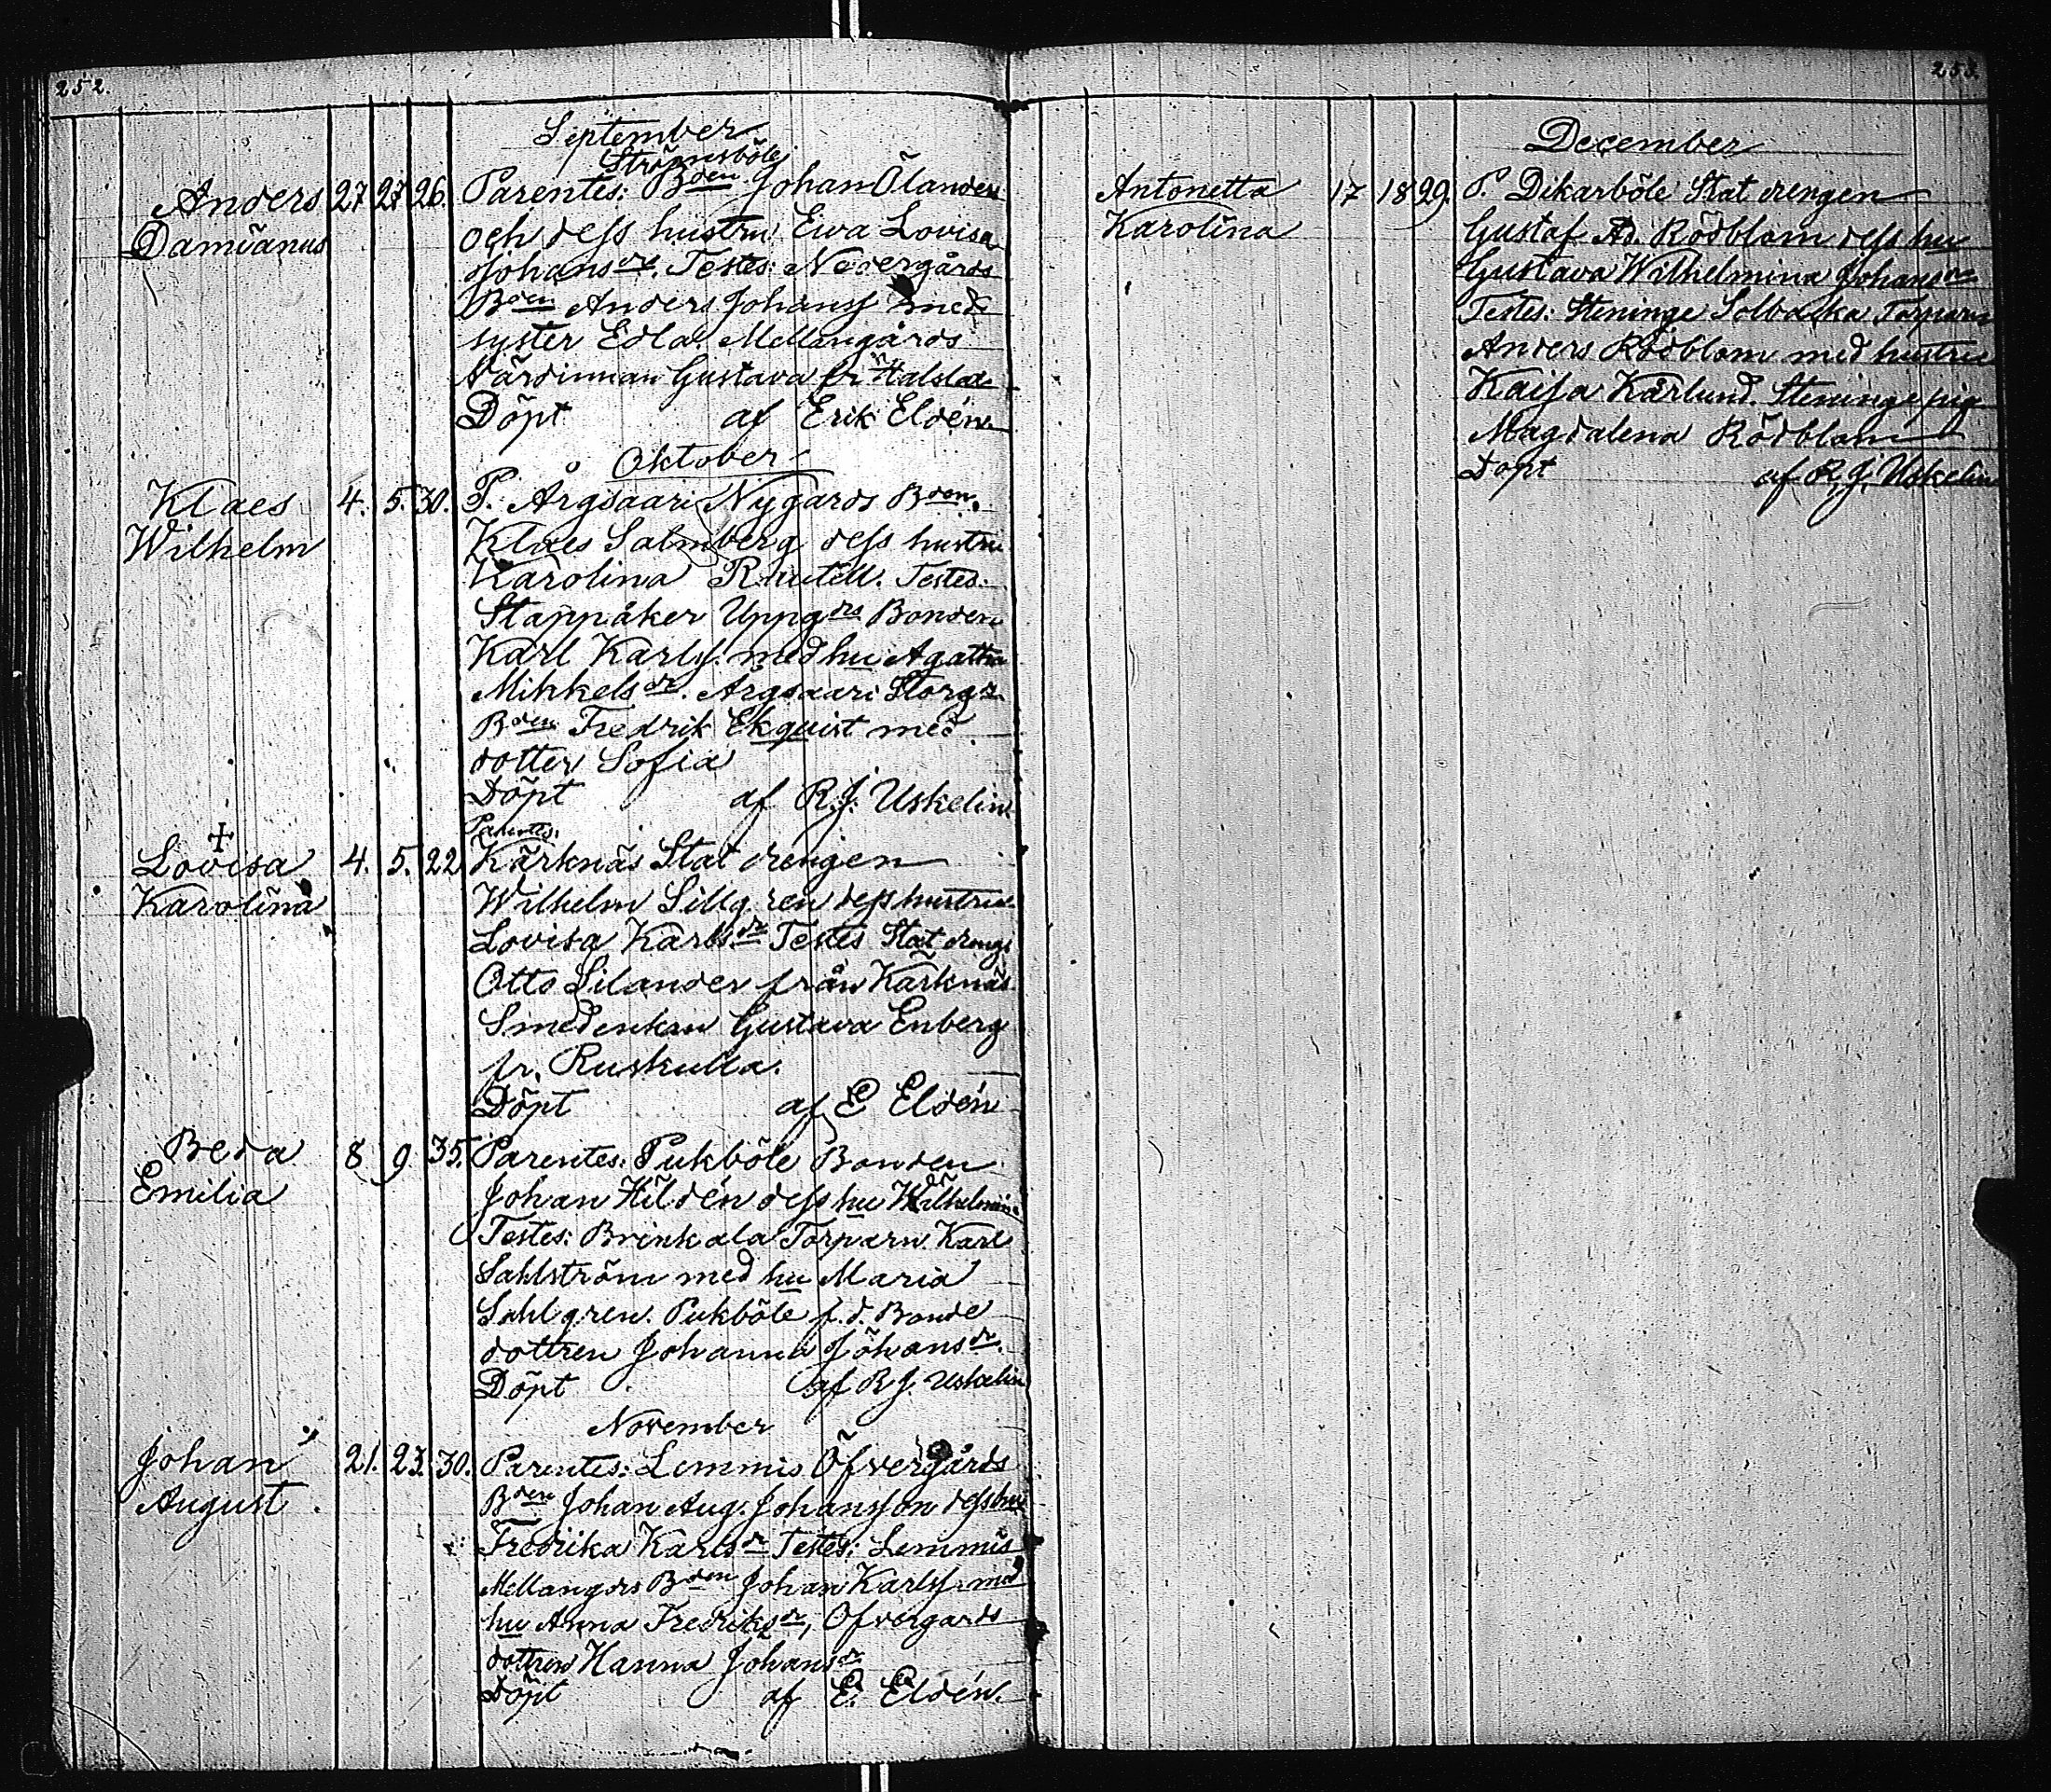 252.
September
Strömsböle
Anders 27 27 26. Parentes: Bden Johan Ölander
Damianus och dess hustru Ewa Lovisa
Johansdr. Testes: Nedergårds
Bden Anders Johanss med
syster Edla Mellangårds
Värdinnan Gustava fr
Döpt af Erik Eldén
Oktober
Klaes 4. 5. 30. P. Årgsaari Nygårds Bden.
Wilhelm Klaes Salmberg dess hustru
Karolina Testes:
Stappåker Uppgds Bonden
Karl Karlss. med hu Agatha
Mikkelsdr. Årgsaari Storgds
Bden Fredrik Ekquist med
dotter Sofia
Döpt af R.J. Uskelin
Parentes:
+
Lovisa 4. 5. 22 Kärknäs Statdrengen
Karolina Wilhelm Sillgren dess hustru
Lovisa Karlsdr Testes Statdrengs
Otto Silander från Kärknäs
Smedenkan Gustava Enberg
fr. Ruskulla.
Döpt af E Eldén
Beda 8 9 35. Parentes: Pukböle Bonden
Emilia Johan Hildén dess hu Wilhelmina
Testes: Brinkala Torparn Karl
Sahlström med hu Maria
Sahlgren. Pukböle f.d. Bonde
dottren Johanna Johansdr.
Döpt af R J. Uskelin
November
Johan 21. 23. 30. Parentes: Lemmis Öfvergårds
August. Bden Johan Aug. Johansson dess hu
Fredrika Karlsdr Testes: Lemmis
Mellangds Bden Johan Karlss. med
hu Anna Fredriksdr, Öfvergards
dottren Hanna Johansdr
Döpt af E. Eldén.
253.
December
Antonetta 17 18 29. P. Dikarböle Stat drengen
Karolina Gustaf Ad. Rödblom dess hu
Gustava Wilhelmina Johansdr
Testes: Steninge Solbacka Torparn
Anders Rödblom med hustru
Kaisa Kärlund. Steninge pig
Magdalena Rödblom
Döpt af R.J. Uskelin